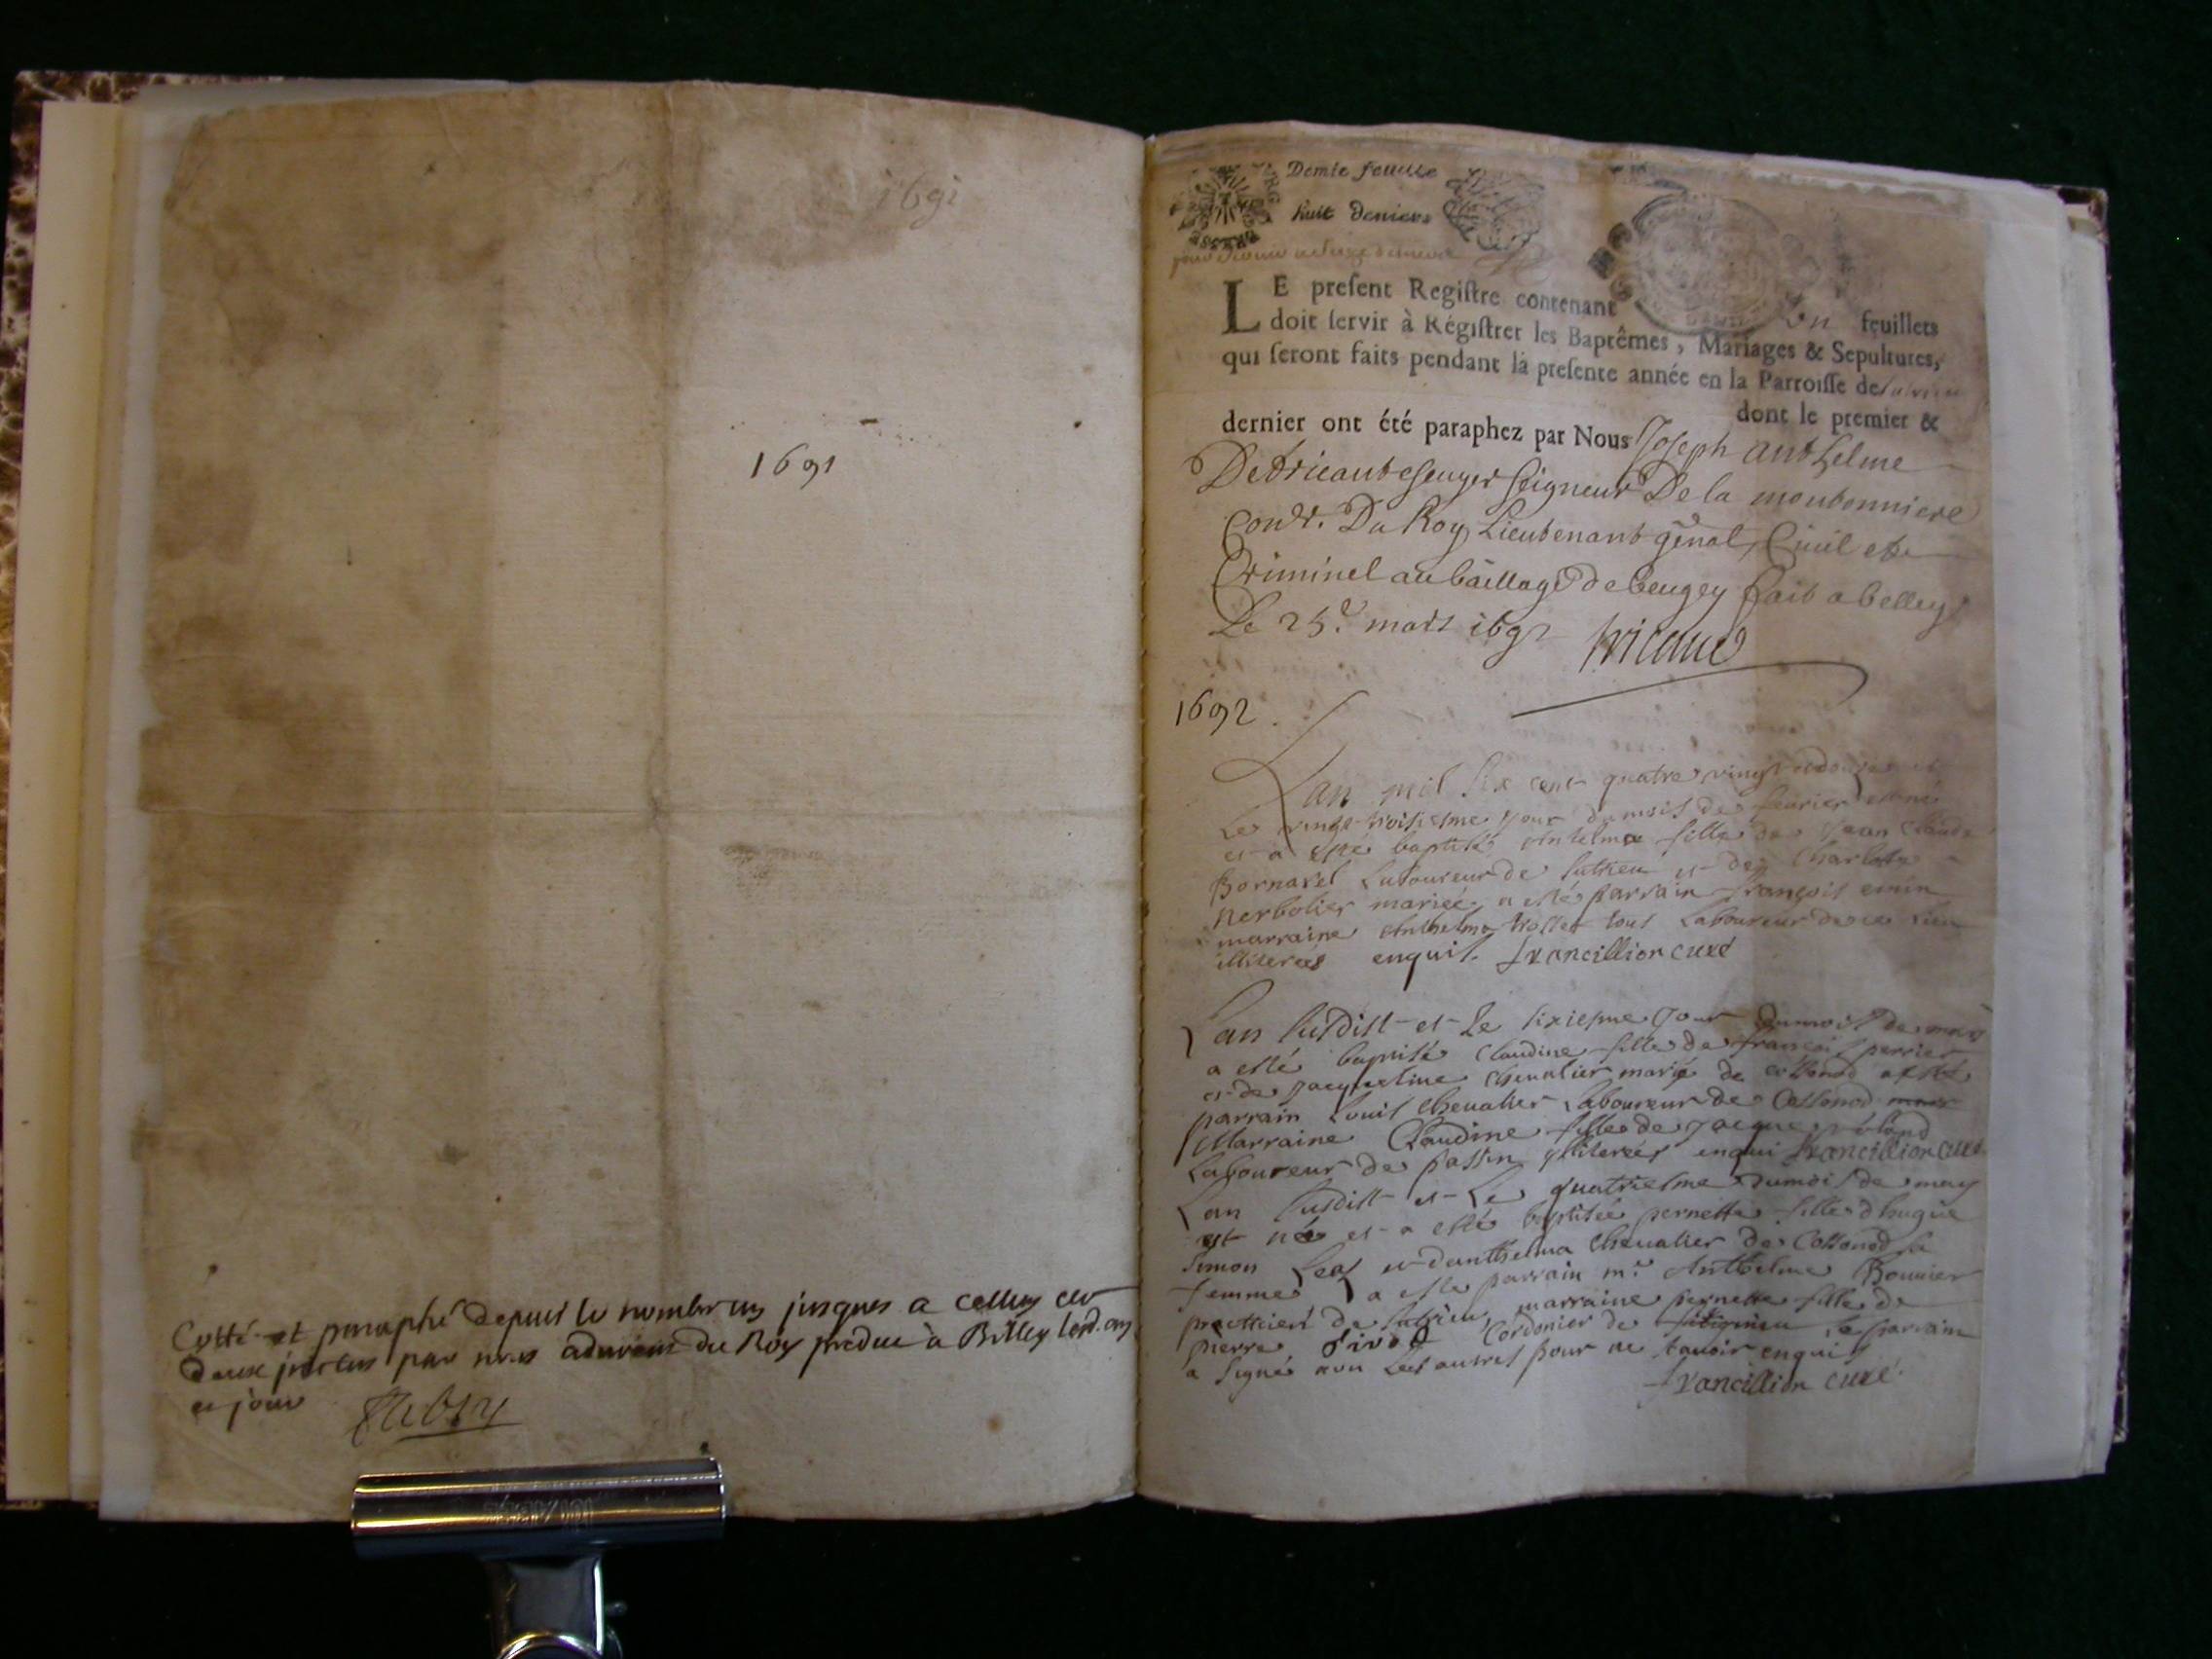 1691
1691
Cotté et paraphé depuis le nombre un jusques a celluy de
deux par nous du Roy à Belley led. an
et jour
Demie feuille
huit deniers
LE preſent Regiſtre contenant un feuillets
doit ſervir à Régiſtrer les Baptêmes, Mariages & Sepultures,
qui ſeront faits pendant la preſente année en la Parroiſſe de Sutrieu
dont le premier &
dernier ont été paraphez par Nous Joseph Anthelme
Detricaut escuyer seigneur De la moubonniere
Conser. Du Roy Lieutenant genal Ciuil et
Criminel au bailliage de beugey fait a belley
Le 25e mars 1692 Tricaud
1692
Lan mil six cent quatre vingt et douze et
Le vingt troisiesme jour du mois de feurier est né
et a esté baptisé Antelma fille de Jean Claude
Bornarel Laboureur de sutrieu et de Charlote
nerbolier mariée, a esté parrain françois
marraine Anthelma trollet tous Laboureur de ce Lieu
illiterées enquis. francillion curé
Lan susdist et Le sixiesme jour du mois de may
a esté baptisé Claudine fille de françois perrier
et de jacqueline Cheualier marié de Cossonod a esté
parrain Louis Cheualier Laboureur de Cossonod
Marraine Claudine fille de jacque
Laboureur de passin illiterées enqui francillion curé
Lan susdist et Le quatriesme du mois de may
est née et a esté baptisée pernette fille d'hugue
simon et danthelma Cheualier de Cossonod sa
femme a esté parrain mr. Anthelme Bonnier
practicien de sutrieu, marraine pernette fille de
pierre Cordonier de le parrain
a signé non Les autres pour ne sauoir enquis
francillion curé.